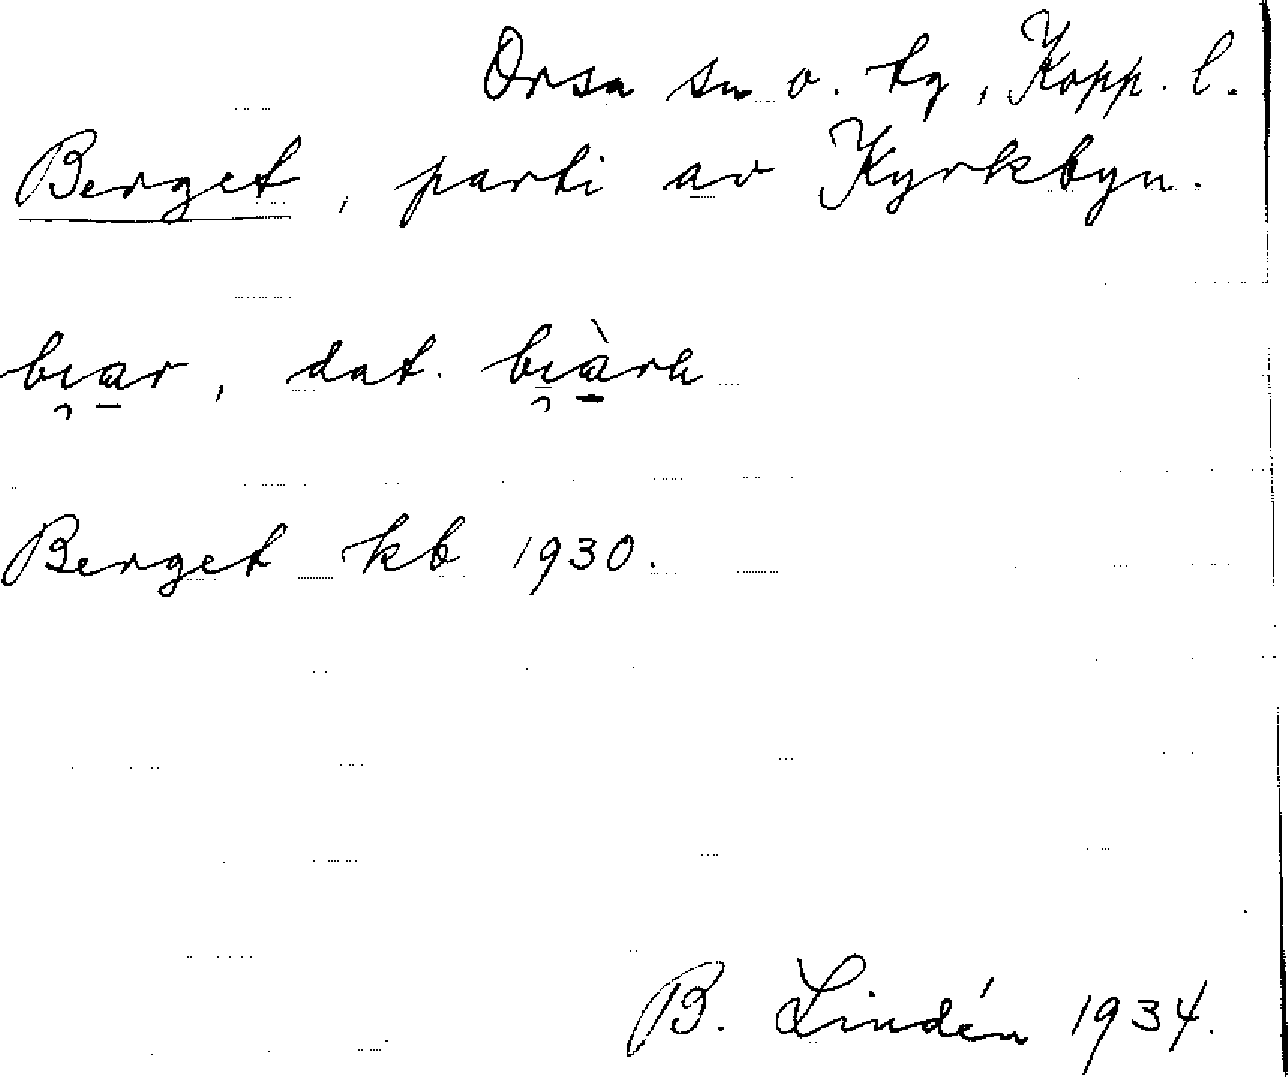 Orsa sn o. tg, Kopp. l.
Berget, parti av Kyrkbyn.
bı̯a̠r, dat. bı̯à̠rk
Berget kb 1930.
B. Lindén 1934.